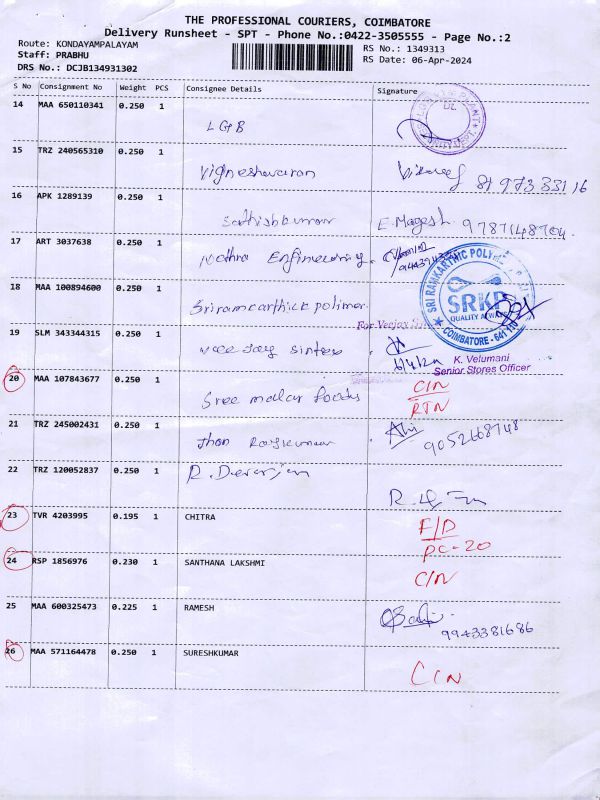 THE PROFESSIONAL COURIERS, COIMBATORE
Delivery Runsheet - SPT - Phone No.:0422-3505555 - Page No.:2
Route: KONDAYAMPALAYAM
RS No.: 1349313
Staff: PRABHU
RS Date: 06-Apr-2024
DRS No.: DCJB134931302
S No Consignment No Weight PCS Consignee Details Signature
14 MAA 650110341 0.250 1
LGB
15 TRZ 240565310 0.250 1
Vigneshwaran
81 973 33116
16 APK 1289139 0.250 1
Sathishkumar E. Magesh 9787148704
17 ART 3037638 0.250 1
Engineering
18 MAA 100894600 0.250 1
Sriramkarthick polimer
SRI RANKARTHIC POLY
SRKP
QUALITY ALWAYS
COIMBATORE - 641 110
19 SLM 343344315 0.250 1
Vee Jay sintex
6/4/24
K. Velumani
Senior Stores Officer
20 MAA 107843677 0.250 1
Sree malar foods
CIN
RTN
21 TRZ 245002431 0.250 1
Jhon Rajkumar
9052668748
22 TRZ 120052837 0.250 1
R. Devarajan
23 TVR 4203995 0.195 1 CHITRA
F/D
PC-20
24 RSP 1856976 0.230 1 SANTHANA LAKSHMI
CIN
25 MAA 600325473 0.225 1 RAMESH
9943381686
26 MAA 571164478 0.250 1 SURESHKUMAR
CIN